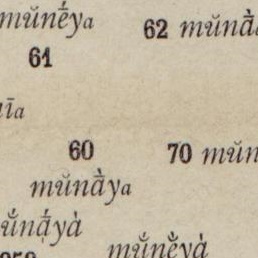 mŭnẹ́ya
62 mŭnạ̀
61
īa
60
70 mŭn
mŭnạ̀ya
ŭ́nạ́yà
mŭ́nẹ̀yà